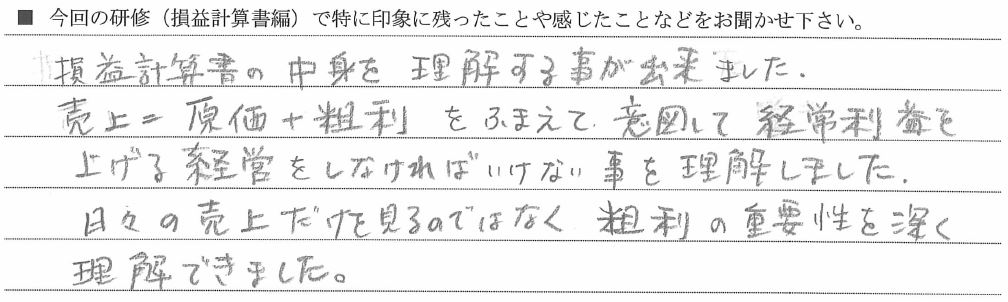 ■ 今回の研修（損益計算書編）で特に印象に残ったことや感じたことなどをお聞かせ下さい。
損益計算書の中身を理解する事が出来ました.
売上＝原価＋粗利をふまえて.意図して経常利益を
上げる経営をしなければいけない事を理解しました.
日々の売上だけを見るのではなく粗利の重要性を深く
理解できました。